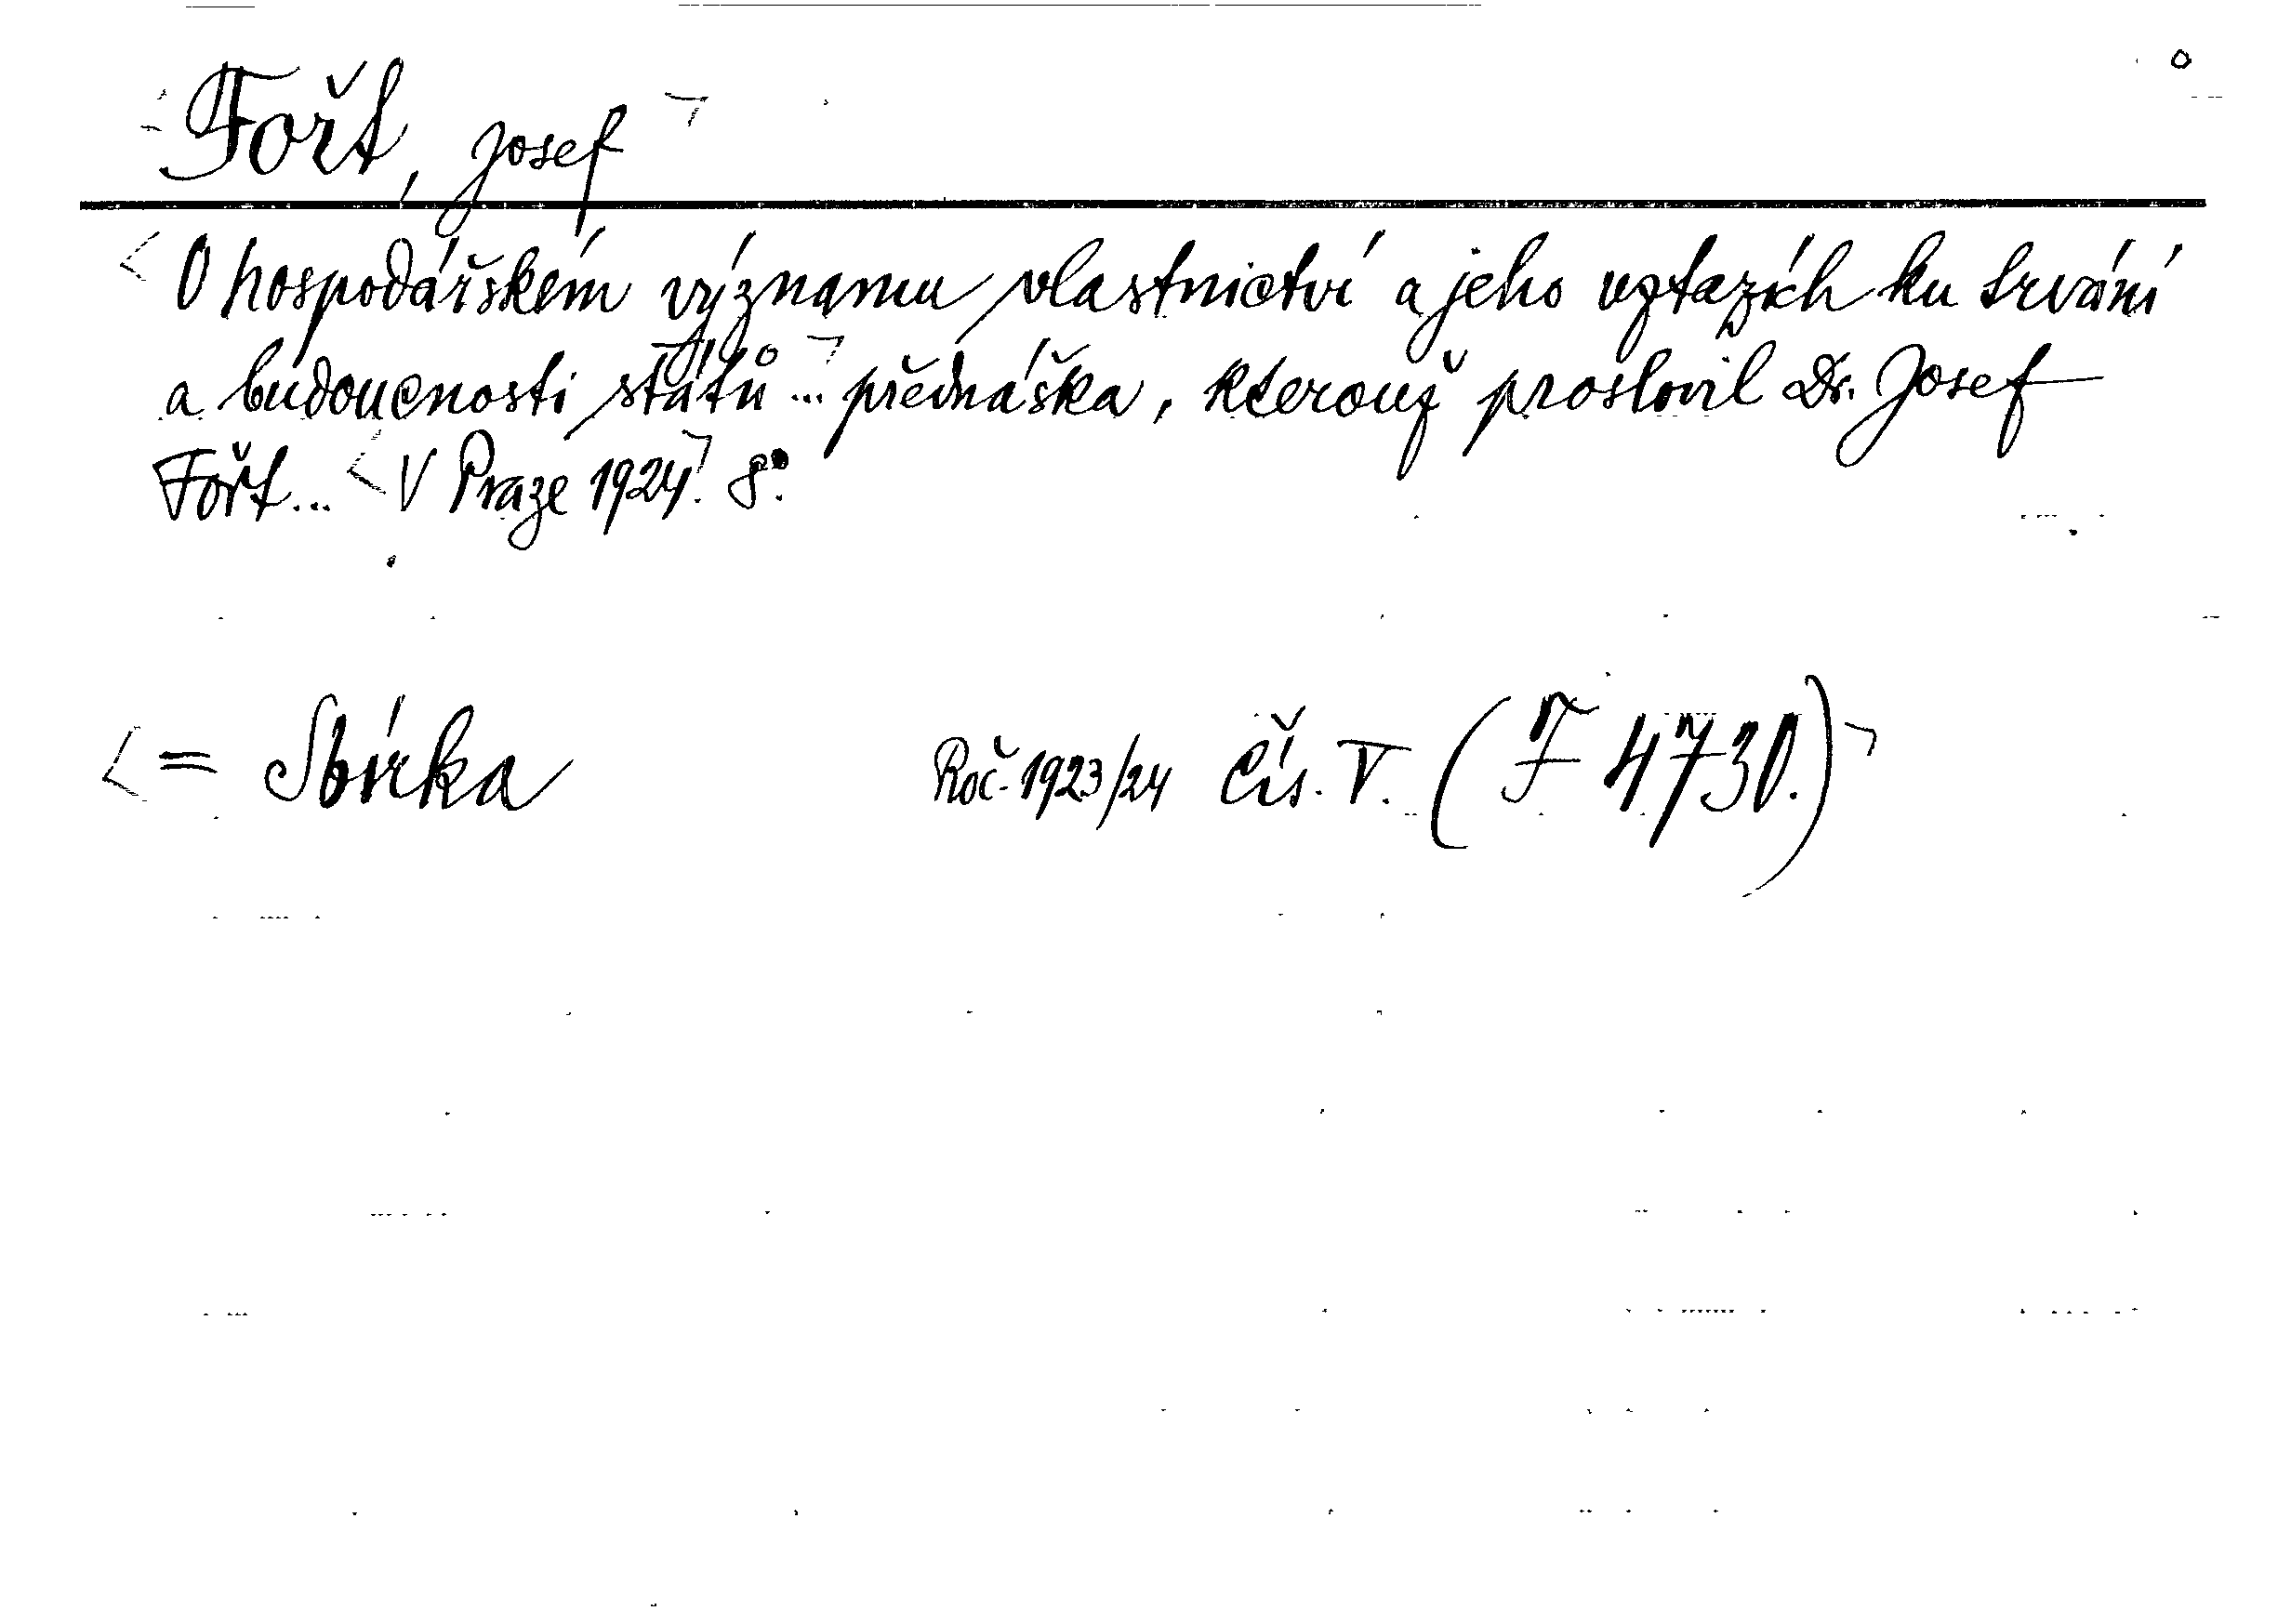 Fořt, Josef
O hospodářském významu vlastnictví a jeho vztazích ku trvání
a budoucnosti států ... přednáška, kterouž proslovil Dr. Josef
Fořt ... V Praze 1924. 8°.
= Sbírka Roč. 1923/24 Čís. V. (F 4730.)